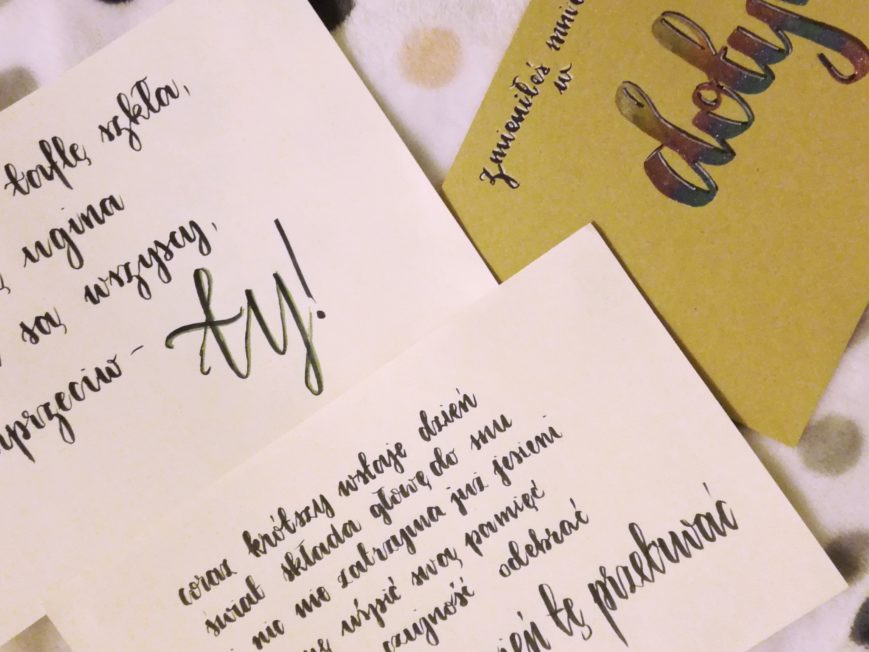 taflę szkła,
ugina
są wszyscy,
przeciw – ty!
zmieniłeś mnie
w
doty
coraz krótszy wstaje dzień
świat składa głowę do snu
i nic nie zatrzyma już jesieni
uśpić swą pamięć
czujność odebrać
tę przetrwać